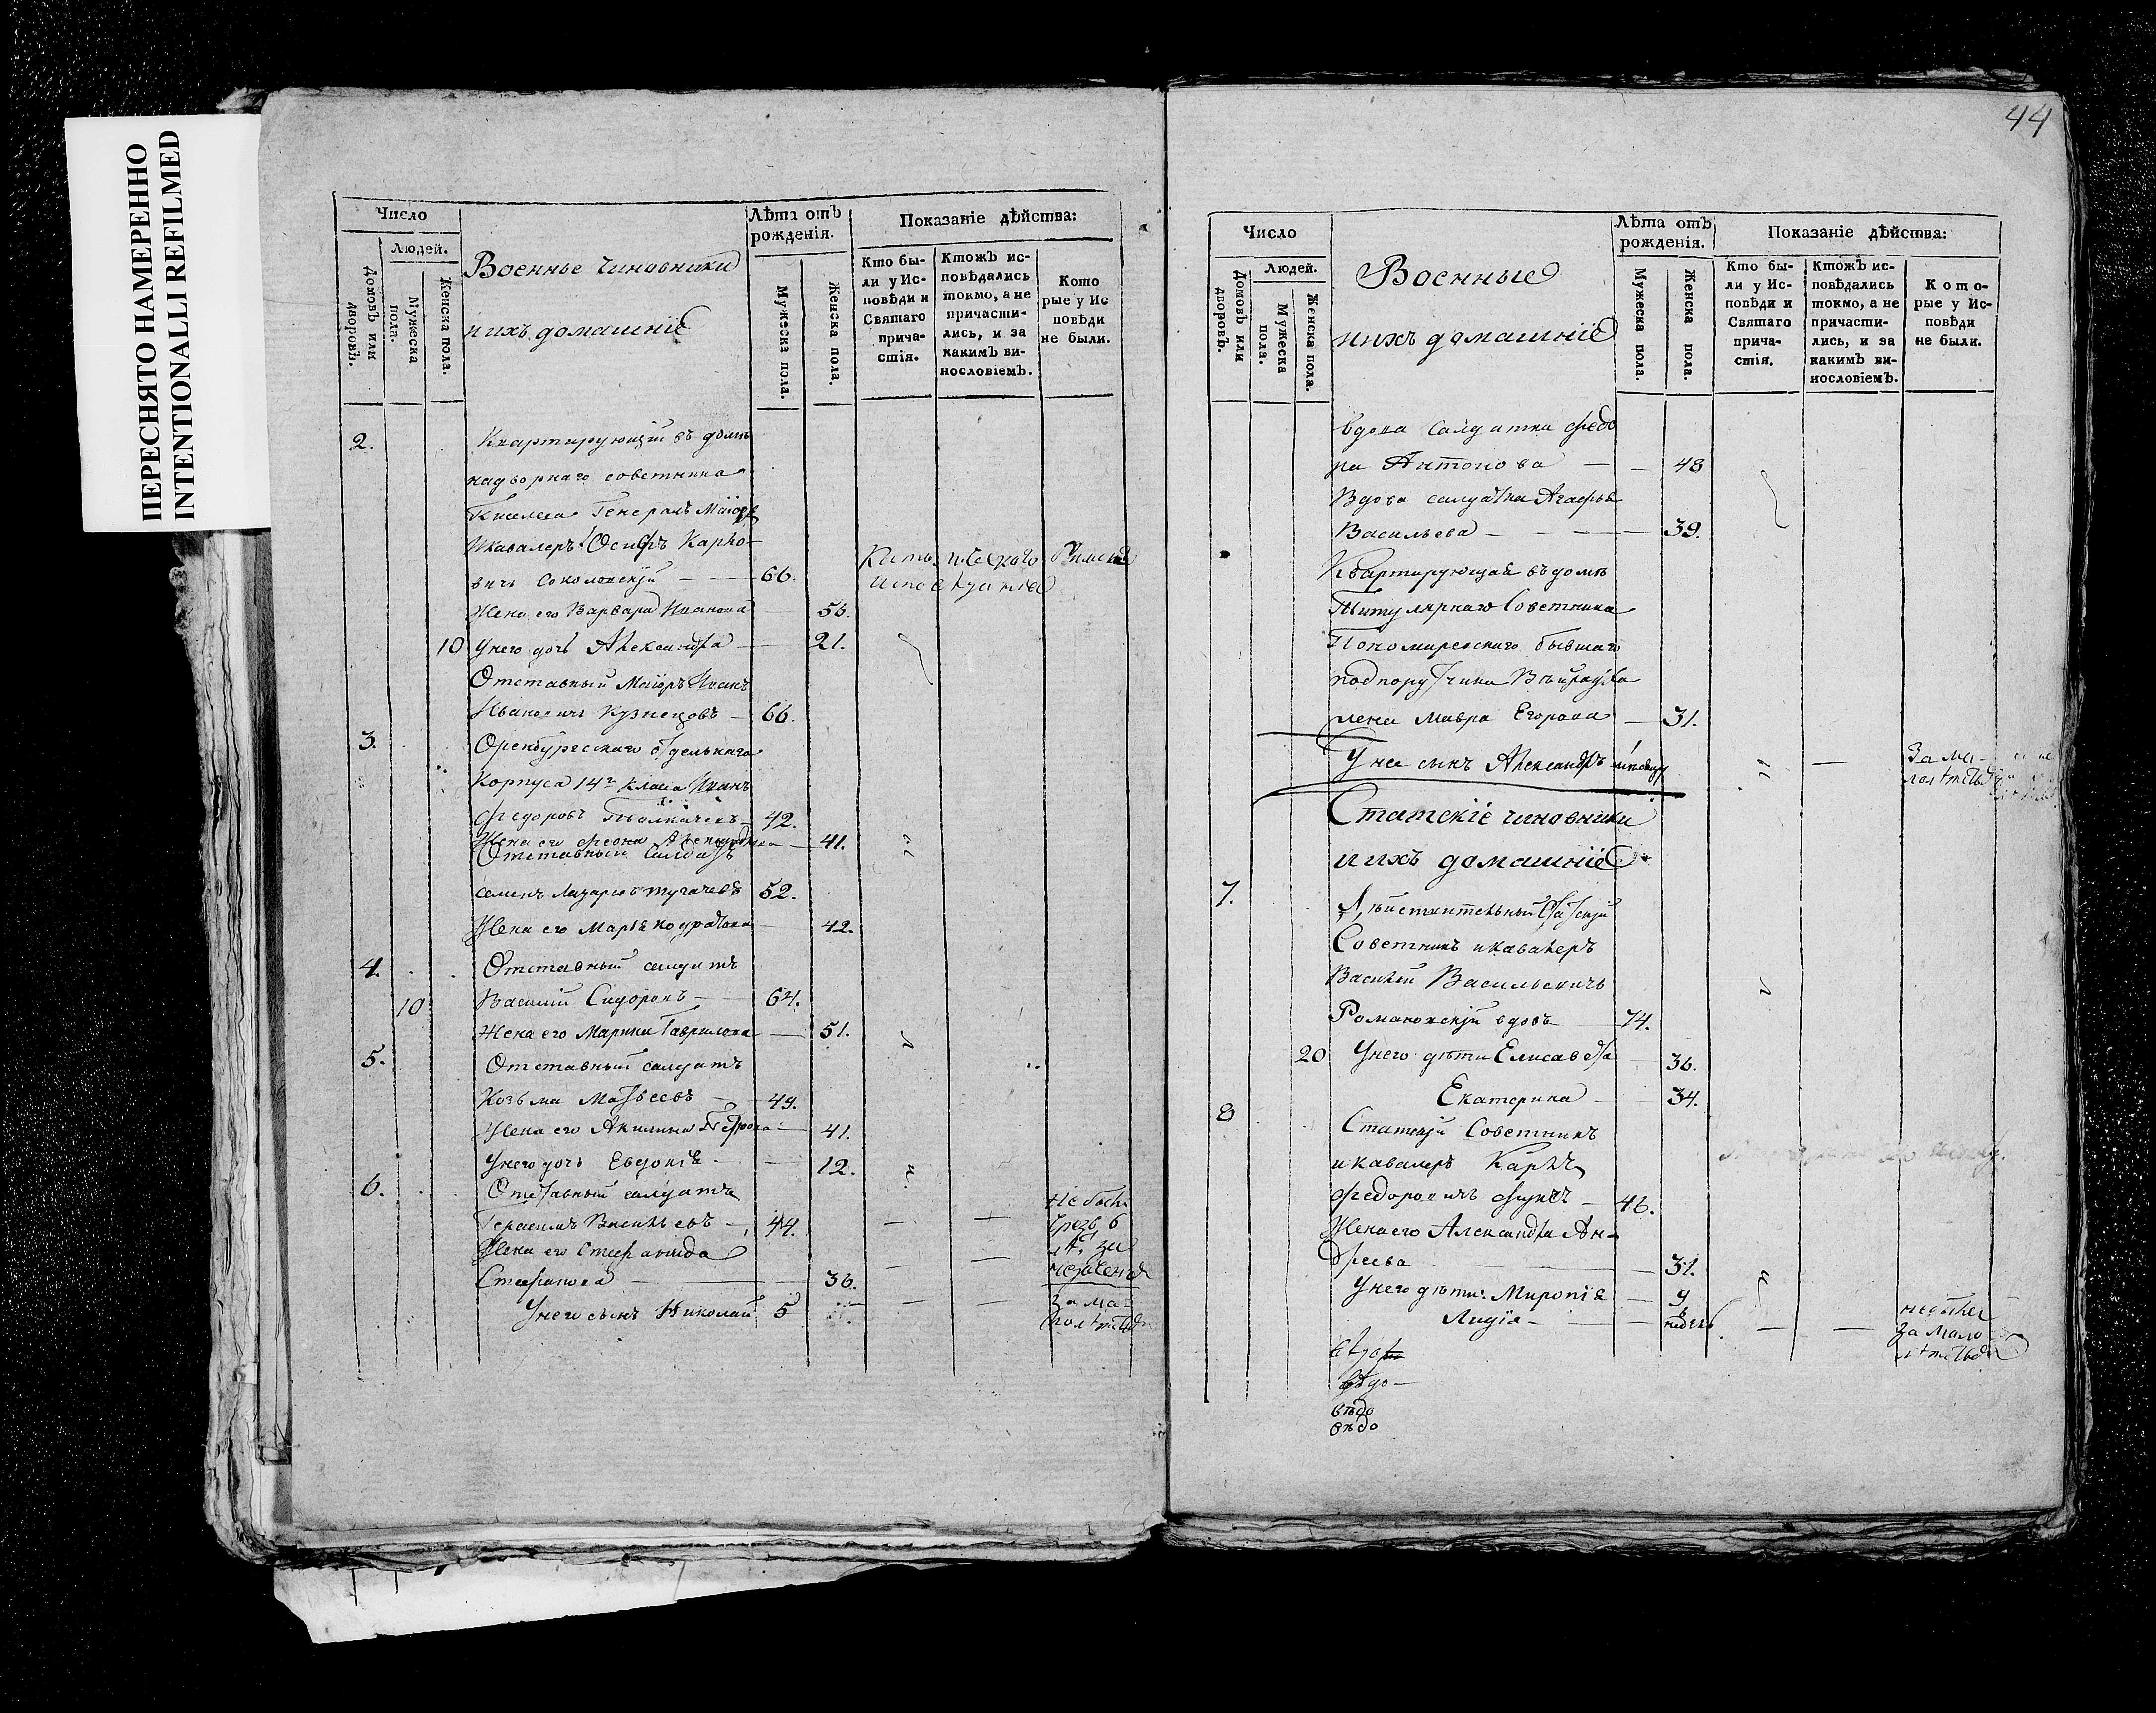 ПЕРЕСНЯТО НАМЕРЕННО
INTENTIONALLI REFILMED
Число
Людей.
Домовъ или дворовъ.
Мужеска пола.
Женска пола.
Военные чиновники
и ихъ домашніе
Лѣта отъ рожденія.
Мужеска пола.
Женска пола.
Показаніе дѣйства:
Кто бы-
ли у Ис-
повѣди и
Святаго
прича-
стія.
Ктожъ ис-
повѣдались
токмо, а не
причасти-
лись, и за
какимъ ви-
нословіемъ.
Кото
рые у Ис
повѣди
не были.
2. Квартирующій въ домѣ
надворнаго советника
Генералъ Маіоръ
и кавалеръ Осипъ Карло-
вичь Соколовскій — 66.
Жена его Варвара Иванова 56.
10 У него дочь Александра — 21.
Отставный Маіоръ Иванъ
Ивановичь Кузнецовъ — 66.
3. Оренбургскаго отдельнаго
Корпуса 14го класа Иванъ
Федоровъ — 42.
Жена его — 41.
Отставный Салдатъ
Семенъ Лазаревъ 52.
Жена его Марья 42.
4. Отставный салдатъ
10 Василій Сидоровъ — 64.
Жена его Марина Гаврилова — 51.
5. Отставный салдатъ
Козьма Матвеевъ — 49.
Жена его Акилина Петрова — 41.
У него дочь Евдокія — 12.
6. Отставный салдатъ
Герасимъ Васильевъ — 44. — — не былъ
Жена его Степанида — —
Степанова — 36.
У него сынъ Николай 5 — — за ма-
лолѣтствомъ
44
Число
Людей.
Домовъ или дворовъ.
Мужеска пола.
Женска пола.
Военные
и ихъ домашніе
Лѣта отъ рожденія.
Мужеска пола.
Женска пола.
Показаніе дѣйства:
Кто бы-
ли у Ис-
повѣди и
Святаго
прича-
стія.
Ктожъ ис-
повѣдались
токмо, а не
причасти-
лись, и за
какимъ ви-
нословіемъ.
Кото-
рые у Ис-
повѣди
не были.
Вдова Салдатка Федо
ра Антонова — — 48
Вдова салдатка Агафья
Васильева — — 39.
Квартирующая въ домѣ
Титулярнаго Советника
Пономаревскаго бывшаго
подпоручика
жена Мавра Егорова — 31.
У нея сынъ Александръ — За ма-
лолѣтствомъ
Статскіе чиновники
и ихъ домашніе
7. Дѣйствительный Статскій
Советникъ и кавалеръ
Василій Васильевичь
Романовскій вдовъ 74.
20 У него дѣти Елисавета 36.
Екатерина 34.
8 Статскій Советникъ
и кавалеръ Карлъ
Федоровичь Фуксъ — 46.
Жена его Александра Ан-
дреева — 31.
У него дѣти: Миропія — 9
Лидія — — — — не были
за мало
лѣтствомъ